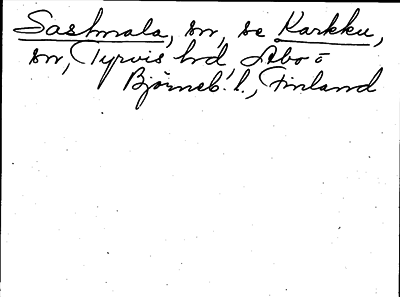 Sastmala, sn, se Karkku,
sn, Tyrvis hd, Åbo o
Björneb. l., Finland